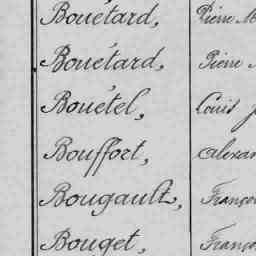 Bouétard, Pierre M
Bouétard, Pierre
Bouétel, Louis
Bouffort, Alexan
Bougault, Franço
Bouget, Franço